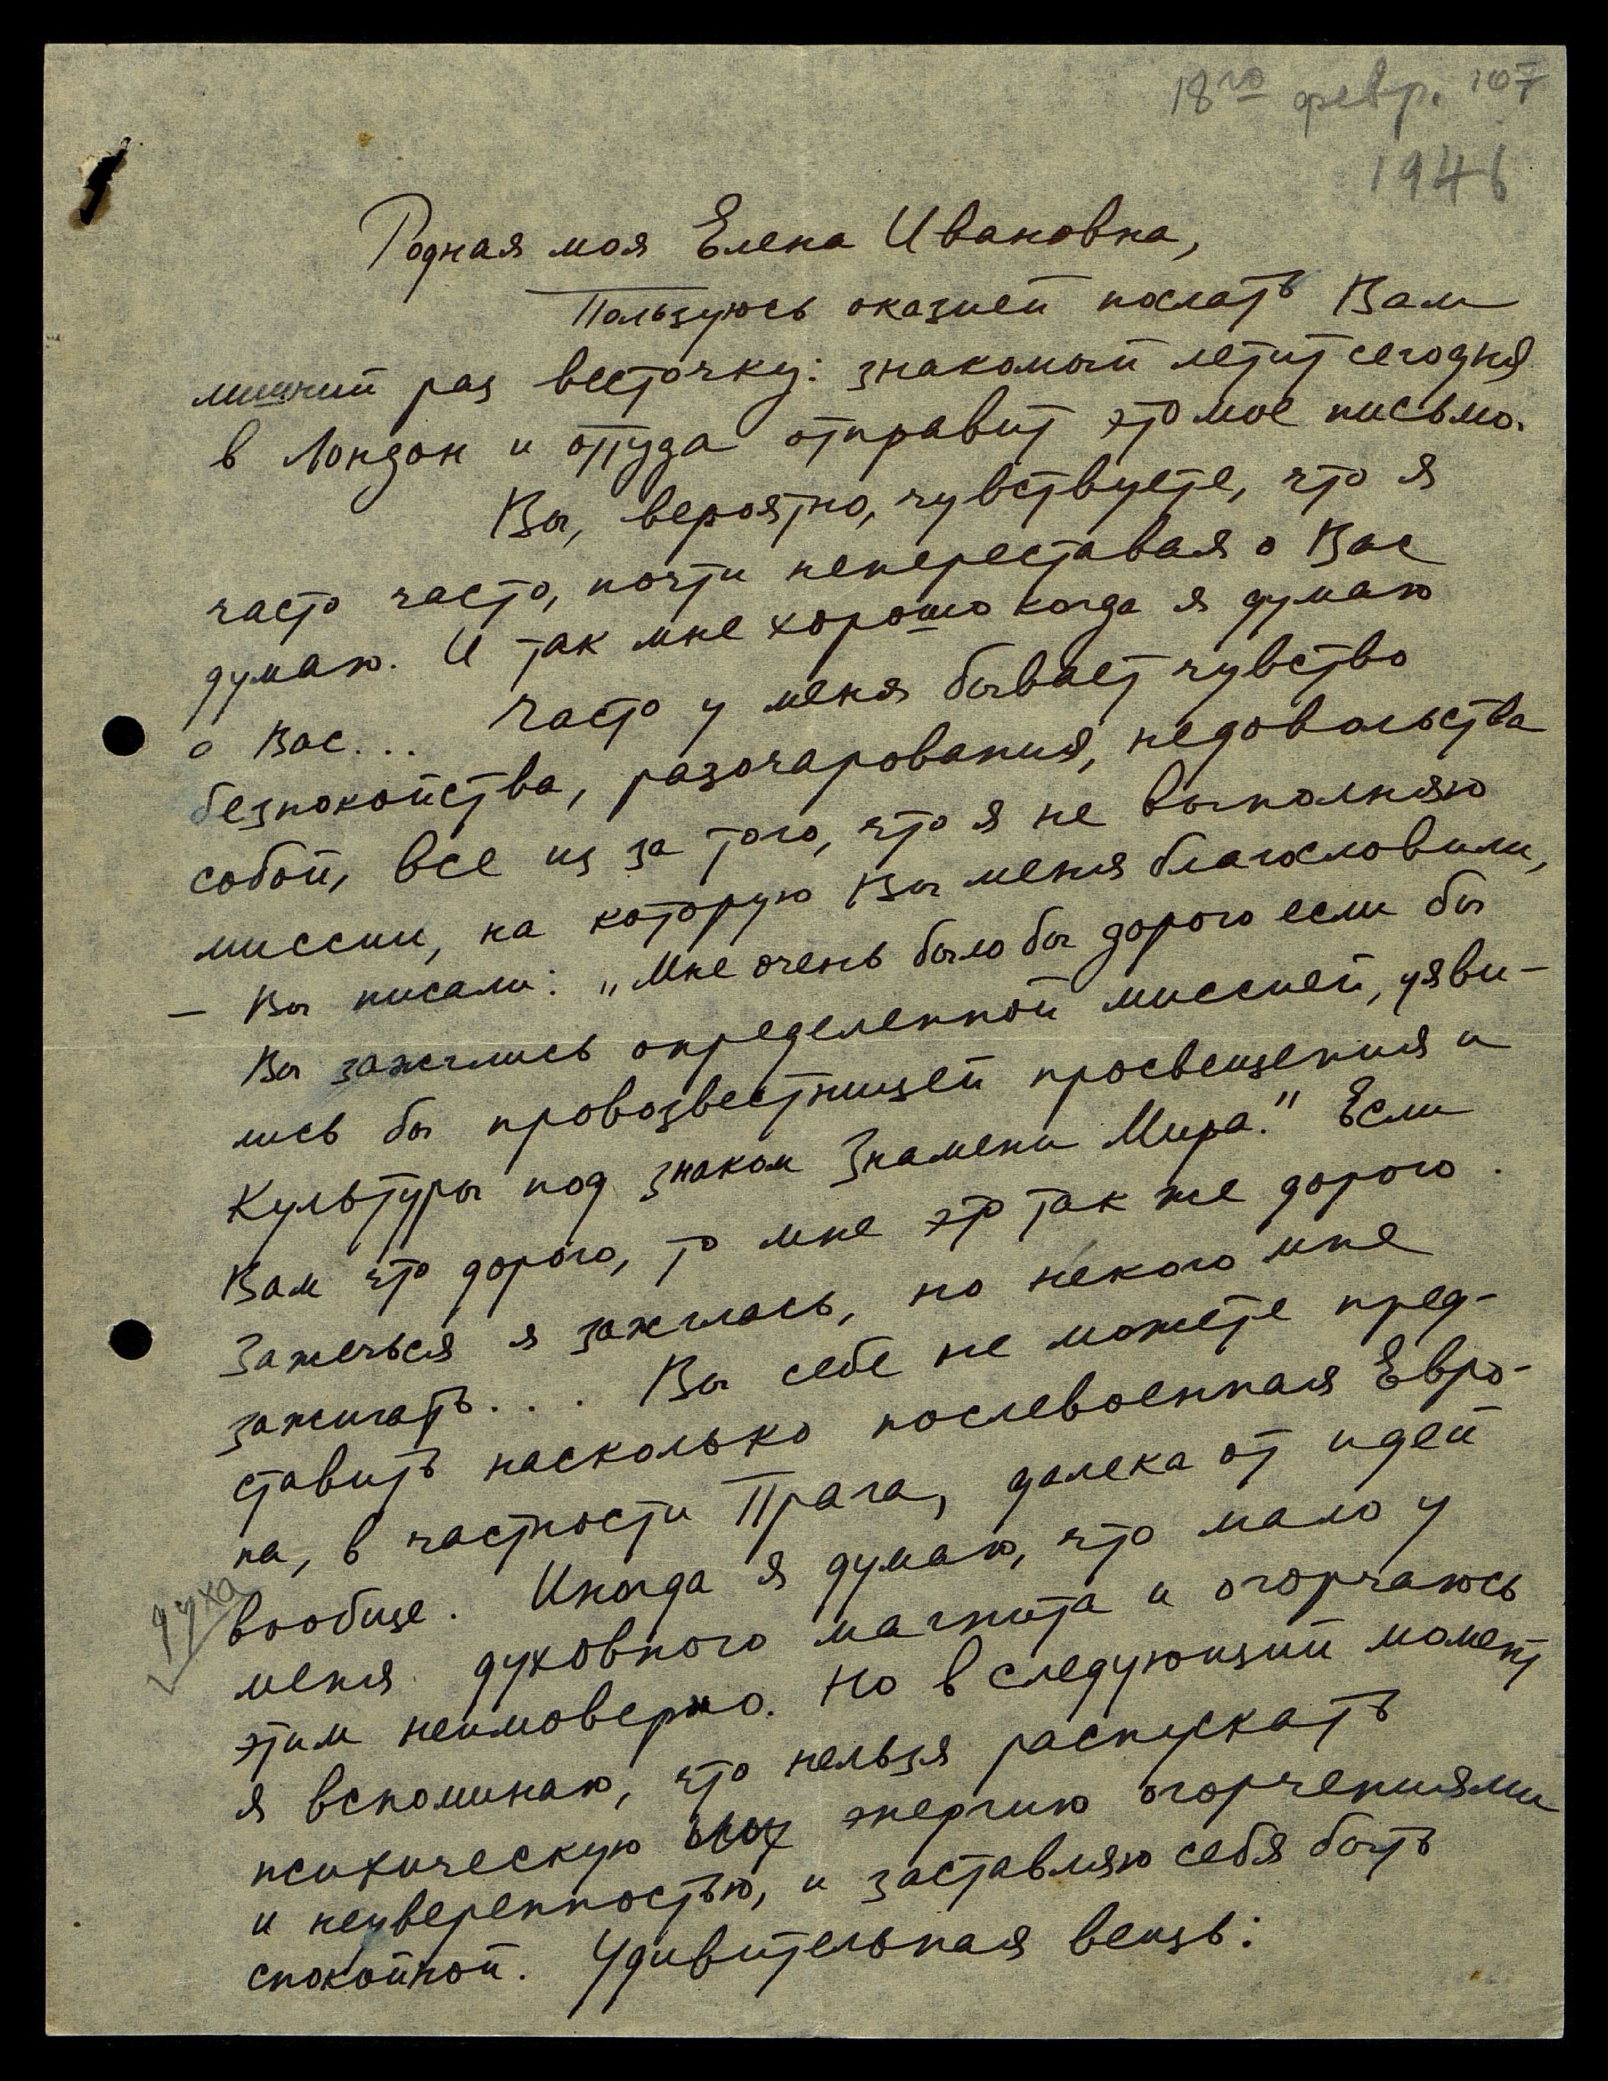 18го февр. 107
1946
Родная моя Елена Ивановна,
Пользуюсь оказией послать Вам
лишний раз весточку: знакомый летит сегодня
в Лондон и оттуда отправит это мое письмо.
Вы, вероятно, чувствуете, что я
часто часто, почти непереставая о Вас
думаю. И так мне хорошо когда я думаю
о Вас... Часто у меня бывает чувство
безпокойства, разочарования, недовольства
собой, все из за того, что я не выполняю
миссии, на которую Вы меня благословили,
– Вы писали: „Мне очень было бы дорого если бы
Вы зажглись определенной миссией, явви-
лись бы провозвестницей просвещения и
Культуры под знаком Знамени Мира." Если
Вам что дорого, то мне это так же дорого.
Зажечься я зажглась, но некого мне
зажигать... Вы себе не можете пред-
ставить насколько послевоенная Евро-
па, в частности Прага, далека от идей
духа
вообще. Иногда я думаю, что мало у
меня духовного магнита и огорчаюсь
этим неимоверно. Но в следующий момент
я вспоминаю, что нельзя распускать
психическую энергию огорчениями
и неуверенностью, и заставляю себя быть
спокойной. Удивительная вещь: